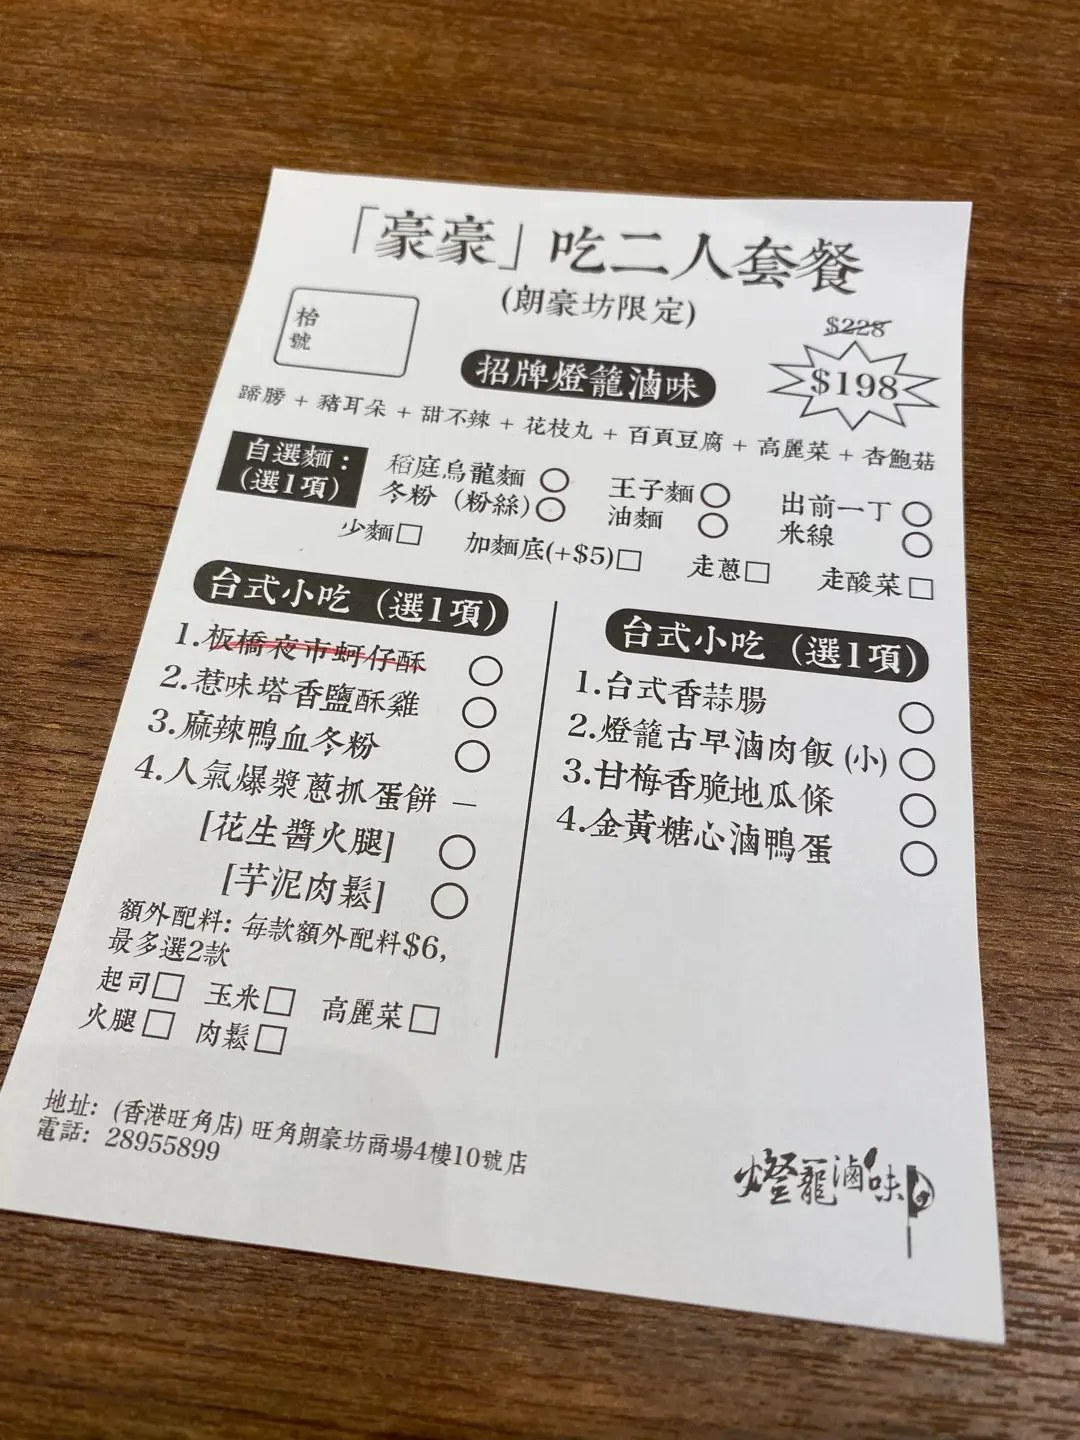 「豪豪」吃二人套餐
(朗豪坊限定)
枱號
$228
$198
招牌燈籠滷味
蹄膀 + 豬耳朵 + 甜不辣 + 花枝丸 + 百頁豆腐 + 高麗菜 + 杏鮑菇
自選麵：
(選1項)
稻庭烏龍麵 ○ 王子麵 ○ 出前一丁 ○
冬粉（粉絲) ○ 油麵 ○ 米線 ○
少麵 □ 加麵底(+$5) □ 走蔥 □ 走酸菜 □
台式小吃（選1項）
1.板橋夜市蚵仔酥 ○
2.惹味塔香鹽酥雞 ○
3.麻辣鴨血冬粉 ○
4.人氣爆漿蔥抓蛋餅 —
[花生醬火腿] ○
[芋泥肉鬆] ○
額外配料: 每款額外配料$6,
最多選2款
起司 □ 玉米 □ 高麗菜 □
火腿 □ 肉鬆 □
台式小吃（選1項）
1.台式香蒜腸 ○
2.燈籠古早滷肉飯 (小) ○
3.甘梅香脆地瓜條 ○
4.金黃糖心滷鴨蛋 ○
地址: (香港旺角店) 旺角朗豪坊商場4樓10號店
電話: 28955899
燈籠滷味